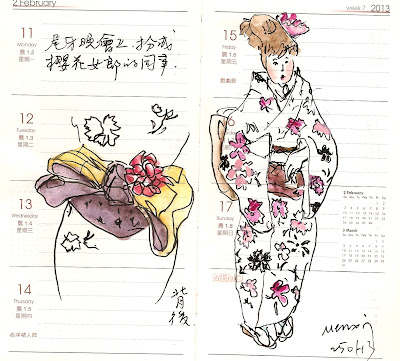 2 February
11
Monday
星期一
尾牙晚會上扮成
櫻花女郎的同事.
12
Tuesday
農 1.3
星期二
13
Wednesday
農 1.4
星期三
14
Thursday
農 1.5
星期四
西洋情人節
背後
week 7 2013
15
Friday
農 1.6
星期五
戲劇節
17
Sunday
農 1.8
星期日
MEMO
2 February
3 March
250113